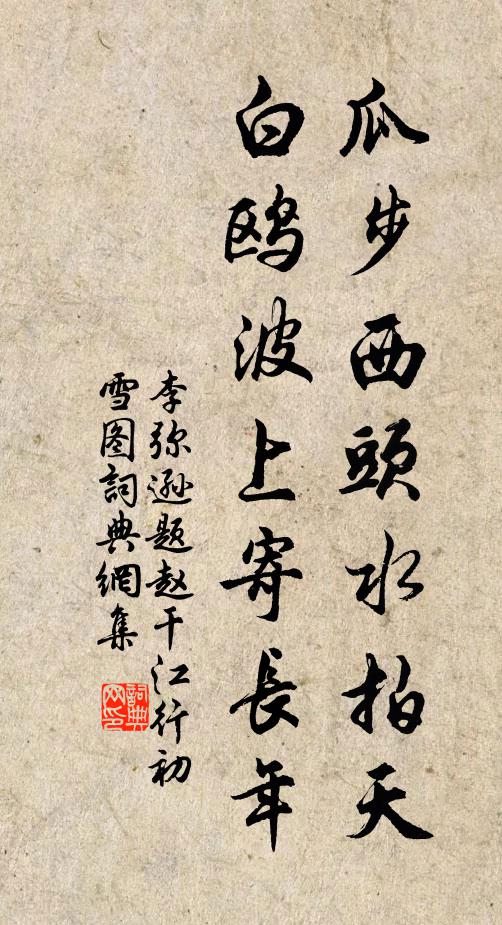 瓜步西頭水拍天
白鸥波上寄長年
李弥逊题赵干江行初
雪图詞典網集
詞典网印